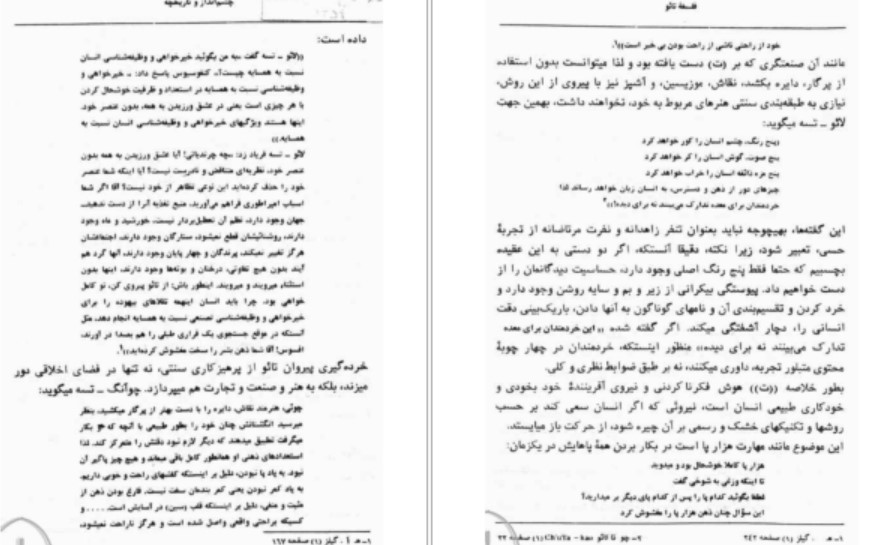 چشم‌انداز و تاریخچه
داده است:
((لائو ــ تسه گفت «به من بگوئید خیرخواهی و وظیفه‌شناسی انسان
نسبت به همسایه چیست؟»، کنفوسیوس پاسخ داد: ــ خیرخواهی و
وظیفه‌شناسی نسبت به همسایه در استعداد و ظرفیت خوشحال کردن
با هر چیزی است یعنی در عشق ورزیدن به همه، بدون عنصر خود.
اینها هستند ویژگیهای خیرخواهی و وظیفه‌شناسی انسان نسبت به
همسایه.))
لائو ــ تسه فریاد زد: «چه چرندیاتی! آیا عشق ورزیدن به همه بدون
عنصر خود، نظریه‌ای متناقض و نادرست نیست؟ آیا اینکه شما عنصر
خود را حذف کرده‌اید این نوعی تظاهر از خود نیست؟ آقا اگر شما
اسباب امپراطوری فراهم می‌آورید، منبع تغذیه آنرا از دست ندهید.
جهان وجود دارد، نظم آن تعطیل‌بردار نیست، خورشید و ماه وجود
دارند، روشنائیشان قطع نمیشود، ستارگان وجود دارند، اجتماعشان
هرگز تغییر نمیکند، پرندگان و چهار پایان وجود دارند، آنها گرد هم
آیند بدون هیچ تفاوتی، درختان و بوته‌ها وجود دارند، اینها بدون
استثناء میرویند و میرویند. اینطور باش: از تائو پیروی کن، تو کامل
خواهی بود. چرا باید انسان اینهمه تقلاهای بیهوده را برای
خیرخواهی و وظیفه‌شناسی تصنعی نسبت به همسایه انجام دهد، مثل
آنستکه در موقع جستجوی یک فراری طبلی را هم بصدا در آورند،
افسوس! آقا شما ذهن بشر را سخت مغشوش کرده‌اید))۱.
خرده‌گیری پیروان تائو از پرهیزکاری سنتی، نه تنها در فضای اخلاقی دور
میزند، بلکه به هنر و صنعت و تجارت هم میپردازد. چوآنگ ــ تسه میگوید:
چوئی، هنرمند نقاش، دایره را با دست بهتر از پرگار میکشید، بنظر
میرسید انگشتانش چنان خود را بطور طبیعی با آنچه که بکار
میگرفت تطبیق میدهند که دیگر لازم نبود دقتش را متمرکز کند. لذا
استعدادهای ذهنی او همانطور کامل باقی میماند و هیچ چیز پاگیر آن
نبود. به یاد پا نبودن، دلیل بر اینستکه کفشهای راحت و خوبی داریم.
به یاد کمر نبودن یعنی کمر بندمان سفت نیست. فارغ بودن ذهن از
مثبت و منفی، دلیل بر اینستکه قلب (سین) در آسایش است..... و
کسیکه براحتی واقعی واصل شده است و هرگز ناراحت نمیشود،
۱ــ گیلز (۱) صفحه ۱۶۷
فلسفهٔ تائو
خود از راحتی ناشی از راحت بودن بی خبر است))۱.
مانند آن صنعتگری که بر (ت) دست یافته بود و لذا میتوانست بدون استفاده
از پرگار، دایره بکشد، نقاش، موزیسین، و آشپز نیز با پیروی از این روش،
نیازی به طبقه‌بندی سنتی هنرهای مربوط به خود، نخواهند داشت، بهمین جهت
لائو ــ تسه میگوید:
«پنج رنگ، چشم انسان را کور خواهد کرد
پنج صوت، گوش انسان را کر خواهد کرد
پنج مزه ذائقه انسان را خراب خواهد کرد
چیزهای دور از ذهن و دسترس، به انسان زیان خواهد رساند لذا
خردمندان برای معده تدارک می‌بینند نه برای دیده))۲
این گفته‌ها، بهیچوجه نباید بعنوان تنفر زاهدانه و نفرت مرتاضانه از تجربهٔ
حسی، تعبیر شود، زیرا نکته، دقیقا آنستکه، اگر دو دستی به این عقیده
بچسبیم که حتما فقط پنج رنگ اصلی وجود دارد، حساسیت دیدگانمان را از
دست خواهیم داد. پیوستگی بیکرانی از زیر و بم و سایه روشن وجود دارد و
خرد کردن و تقسیم‌بندی آن و نامهای گوناگون به آنها دادن، باریک‌بینی دقت
انسانی را، دچار آشفتگی میکند. اگر گفته شده «این خردمندان برای معده
تدارک می‌بینند نه برای دیده» منظور اینستکه، خردمندان در چهار چوبهٔ
محتوی متبلور تجربه، داوری میکنند، نه بر طبق ضوابط نظری و کلی.
بطور خلاصه ((ت)) هوش فکرناکردنی و نیروی آفرینندهٔ خود بخودی و
خودکاری طبیعی انسان است، نیروئی که اگر انسان سعی کند بر حسب
روشها و تکنیکهای خشک و رسمی بر آن چیره شود، از حرکت باز میایستد.
این موضوع مانند مهارت هزار پا است در بکار بردن همهٔ پاهایش در یکزمان:
هزار پا کاملا خوشحال بود و میدوید
تا اینکه وزغی به شوخی گفت
لطفا بگوئید کدام پا را پس از کدام پای دیگر بر میدارید؟
این سؤال چنان ذهن هزار پا را مغشوش کرد
۱ــ گیلز (۱) صفحه ۲۴۲
۲ــ چو تا کائو Ch'u Ta - kao (۱) صفحه ۲۲